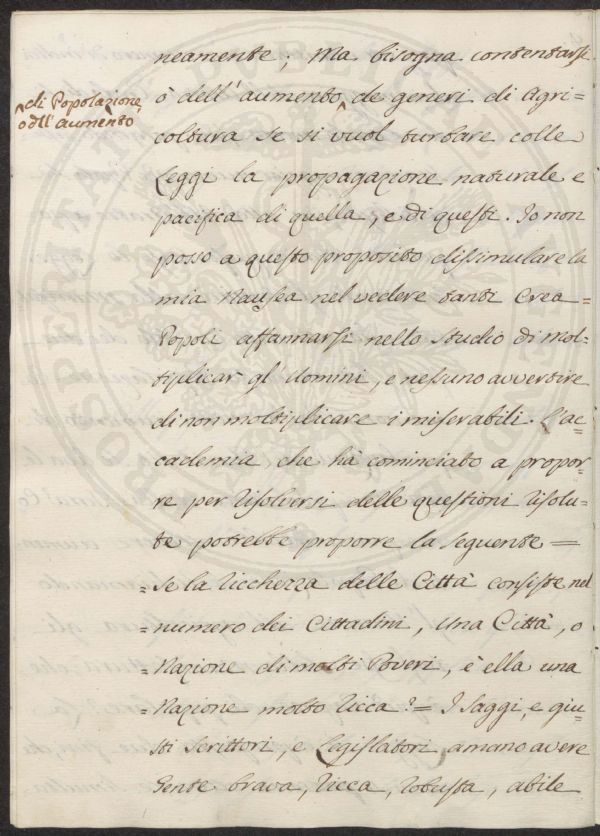 neamente; Ma bisogna contentarsi
ò dell'aumento ^ de generi di Agri=
^ di Popolazione,
o dell'aumento
coltura se si vuol turbare colle
Leggi la propagazione naturale e
pacifica di quella, e di questi. Io non
posso a questo proposito dissimulare la
mia Nausea nel vedere tanti Crea=
Popoli affannarsi nello Studio di mol=
tiplicar gl'Uomini, e nessuno avvertire
di non moltiplicare i miserabili. L'ac=
cademia che hà cominciato a propor=
re per risolversi delle questioni risolu=
te potrebbe proporre la seguente =
=Se la ricchezza delle Città consiste nel
=numero dei Cittadini, una Città, o
=Nazione di molti Poveri, è ella una
=Nazione molto ricca?= I Saggi, e giu=
sti Scrittori, e Legislatori amano avere
Gente brava, ricca, robusta, abile
PROSPERITATI PUBLICAE AUGENDAE